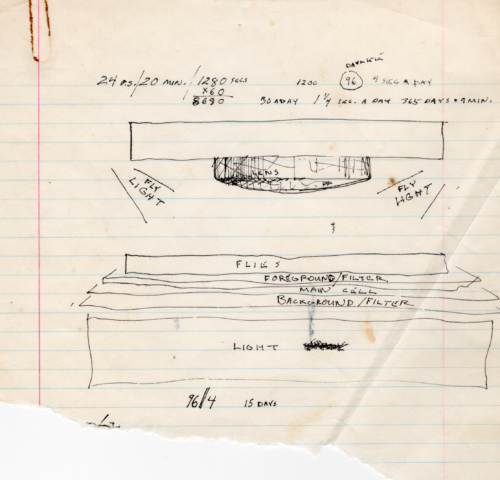 DAYLITE
24 P.S./20 MIN. / 1280 SECS 1200 96 4 SEC A DAY
X60
30 A DAY 1 1/4 SEC. A DAY 365 DAYS * 9 MIN.
LENS
FLY LIGHT
FLY LIGHT
FLIES
FOREGROUND/FILTER
MAIN CELL
BACKGROUND/FILTER
LIGHT
96/4 15 DAYS